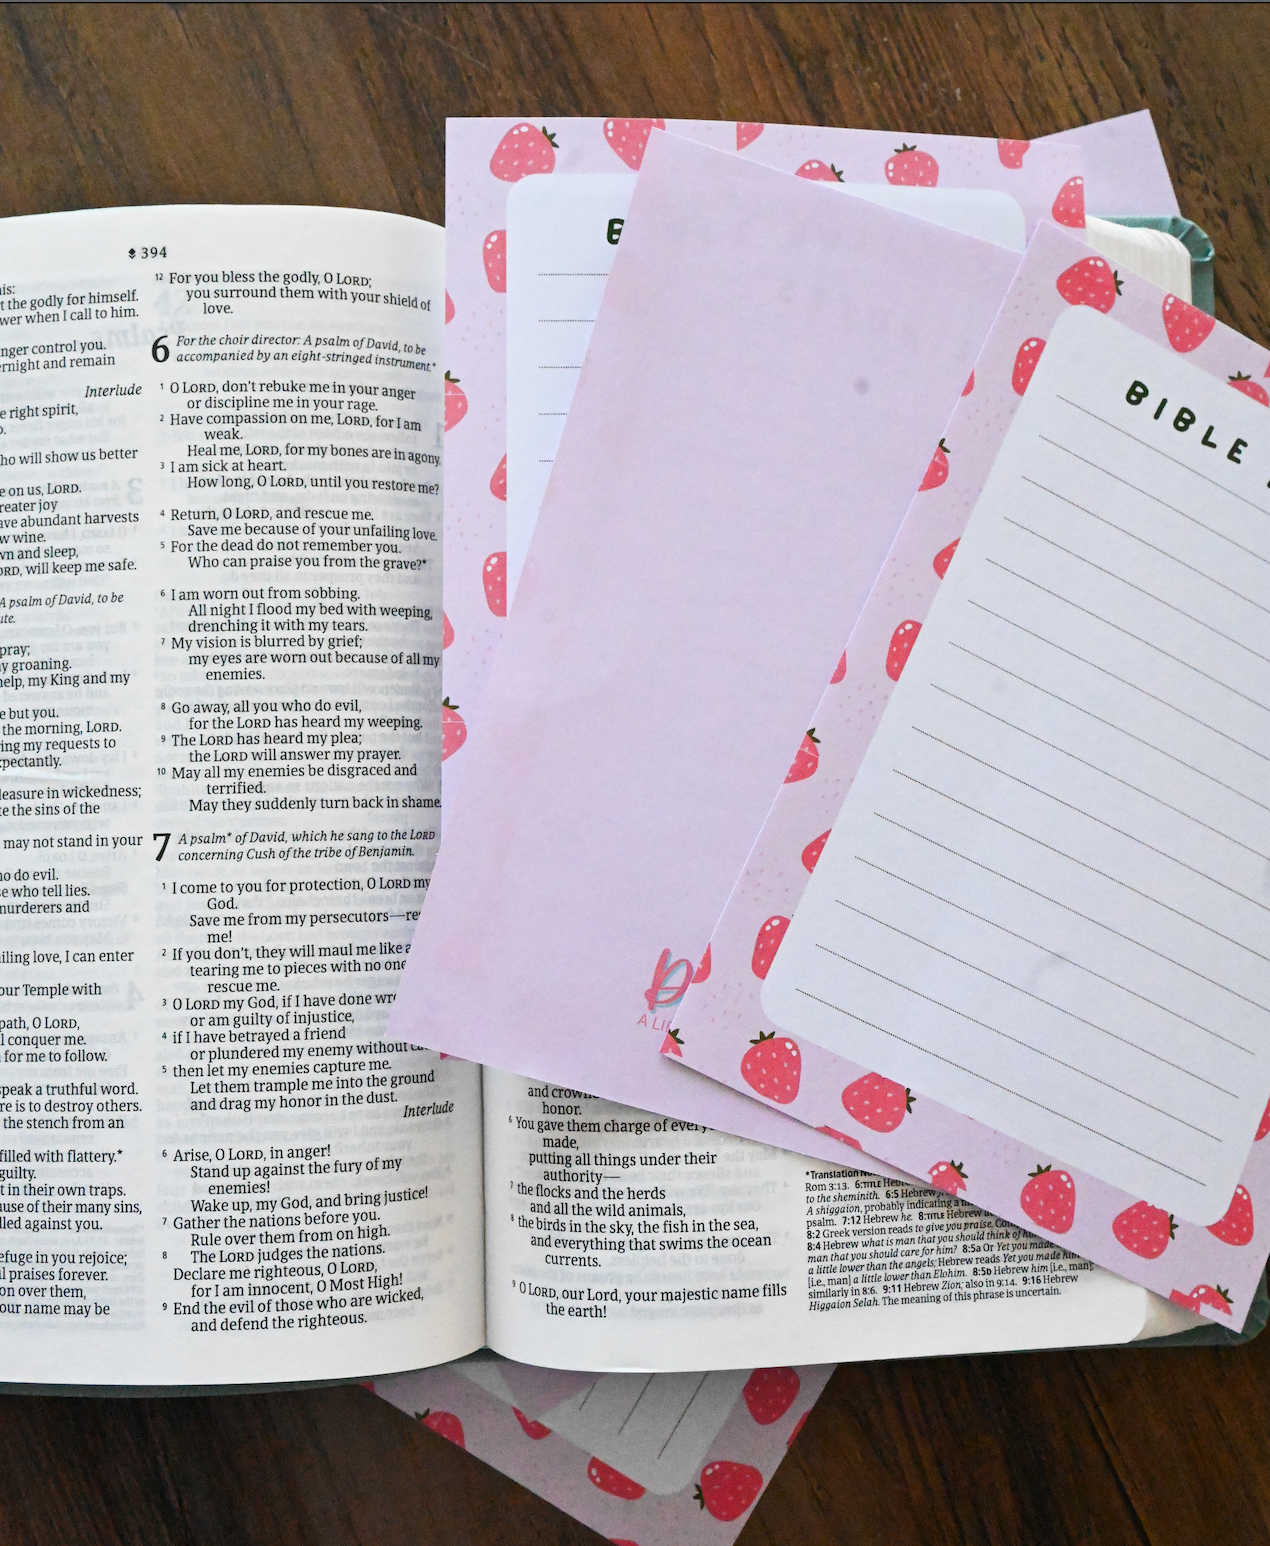 394
his:
t the godly for himself.
wer when I call to him.
nger control you.
ernight and remain
Interlude
e right spirit,
o.
ho will show us better
e on us, LORD.
reater joy
ave abundant harvests
w wine.
wn and sleep,
ORD, will keep me safe.
A psalm of David, to be
ute.
pray;
y groaning.
help, my King and my
e but you.
the morning, LORD.
ing my requests to
xpectantly.
leasure in wickedness;
te the sins of the
may not stand in your
ho do evil.
se who tell lies.
murderers and
iling love, I can enter
our Temple with
path, O LORD,
l conquer me.
for me to follow.
speak a truthful word.
re is to destroy others.
the stench from an
filled with flattery.*
guilty.
t in their own traps.
ause of their many sins,
lled against you.
efuge in you rejoice;
l praises forever.
on over them,
our name may be
12 For you bless the godly, O LORD;
you surround them with your shield of
love.
6 For the choir director: A psalm of David, to be
accompanied by an eight-stringed instrument.*
1 O LORD, don't rebuke me in your anger
or discipline me in your rage.
2 Have compassion on me, LORD, for I am
weak.
Heal me, LORD, for my bones are in agony.
3 I am sick at heart.
How long, O LORD, until you restore me?
4 Return, O LORD, and rescue me.
Save me because of your unfailing love.
5 For the dead do not remember you.
Who can praise you from the grave?*
6 I am worn out from sobbing.
All night I flood my bed with weeping,
drenching it with my tears.
7 My vision is blurred by grief;
my eyes are worn out because of all my
enemies.
8 Go away, all you who do evil,
for the LORD has heard my weeping.
9 The LORD has heard my plea;
the LORD will answer my prayer.
10 May all my enemies be disgraced and
terrified.
May they suddenly turn back in shame.
7 A psalm* of David, which he sang to the LORD
concerning Cush of the tribe of Benjamin.
1 I come to you for protection, O LORD my
God.
Save me from my persecutors—re
me!
2 If you don't, they will maul me like a
tearing me to pieces with no one
rescue me.
3 O LORD my God, if I have done wr
or am guilty of injustice,
4 if I have betrayed a friend
or plundered my enemy without
5 then let my enemies capture me.
Let them trample me into the ground
and drag my honor in the dust.
Interlude
6 Arise, O LORD, in anger!
Stand up against the fury of my
enemies!
Wake up, my God, and bring justice!
7 Gather the nations before you.
Rule over them from on high.
8 The LORD judges the nations.
Declare me righteous, O LORD,
for I am innocent, O Most High!
9 End the evil of those who are wicked,
and defend the righteous.
B
A LI
BIBLE
and crown
honor.
6 You gave them charge of every
made,
putting all things under their
authority—
7 the flocks and the herds
and all the wild animals,
8 the birds in the sky, the fish in the sea,
and everything that swims the ocean
currents.
9 O LORD, our Lord, your majestic name fills
the earth!
*Translation
Rom 3:13. 6:TITLE Hebr
to the sheminith. 6:5 Hebrew
A shiggaion, probably indicating a
psalm. 7:12 Hebrew he. 8:TITLE Hebrew
8:2 Greek version reads to give you praise.
8:4 Hebrew what is man that you should think of
man that you should care for him? 8:5a Or Yet you made
a little lower than the angels; Hebrew reads Yet you made him
[i.e., man] a little lower than Elohim. 8:5b Hebrew him [i.e., man];
similarly in 8:6. 9:11 Hebrew Zion; also in 9:14. 9:16 Hebrew
Higgaion Selah. The meaning of this phrase is uncertain.